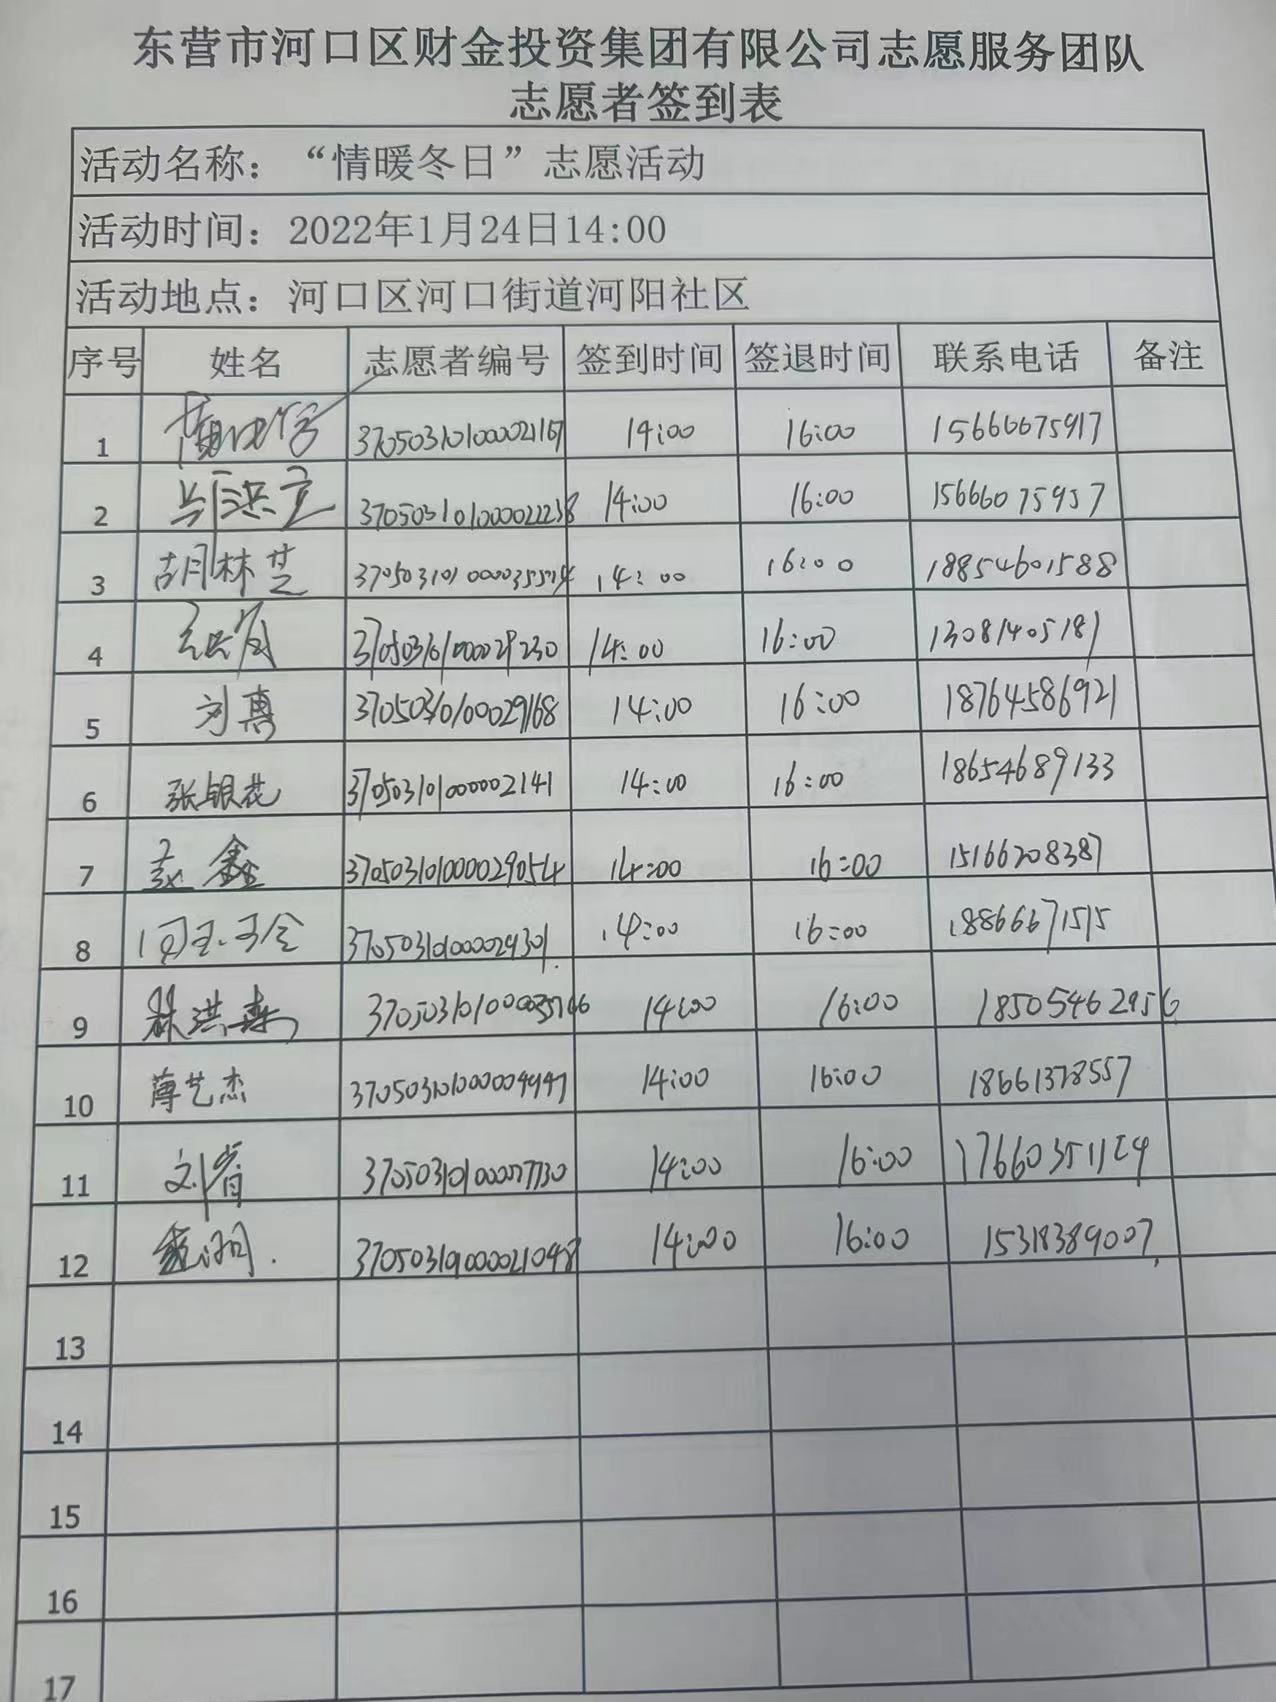 东营市河口区财金投资集团有限公司志愿服务团队
志愿者签到表
活动名称：“情暖冬日”志愿活动
活动时间：2022年1月24日14:00
活动地点：河口区河口街道河阳社区
序号 姓名 志愿者编号 签到时间 签退时间 联系电话 备注
1 14:00 16:00 15666675917
2 14:00 16:00 15666075957
3 胡林芝 14:00 16:00 18854601588
4 14:00 16:00 13081405181
5 刘惠 370503101000029168 14:00 16:00 18764586921
6 张银花 370503101000002141 14:00 16:00 18654689133
7 赵鑫 370503101000029054 14:00 16:00 15166208387
8 370503101000029301 14:00 16:00 18866671515
9 林洪森 14:00 16:00 18505462956
10 薄艺杰 370503101000004947 14:00 16:00 18661378557
11 14:00 16:00
12 14:00 16:00 15318389007
13
14
15
16
17